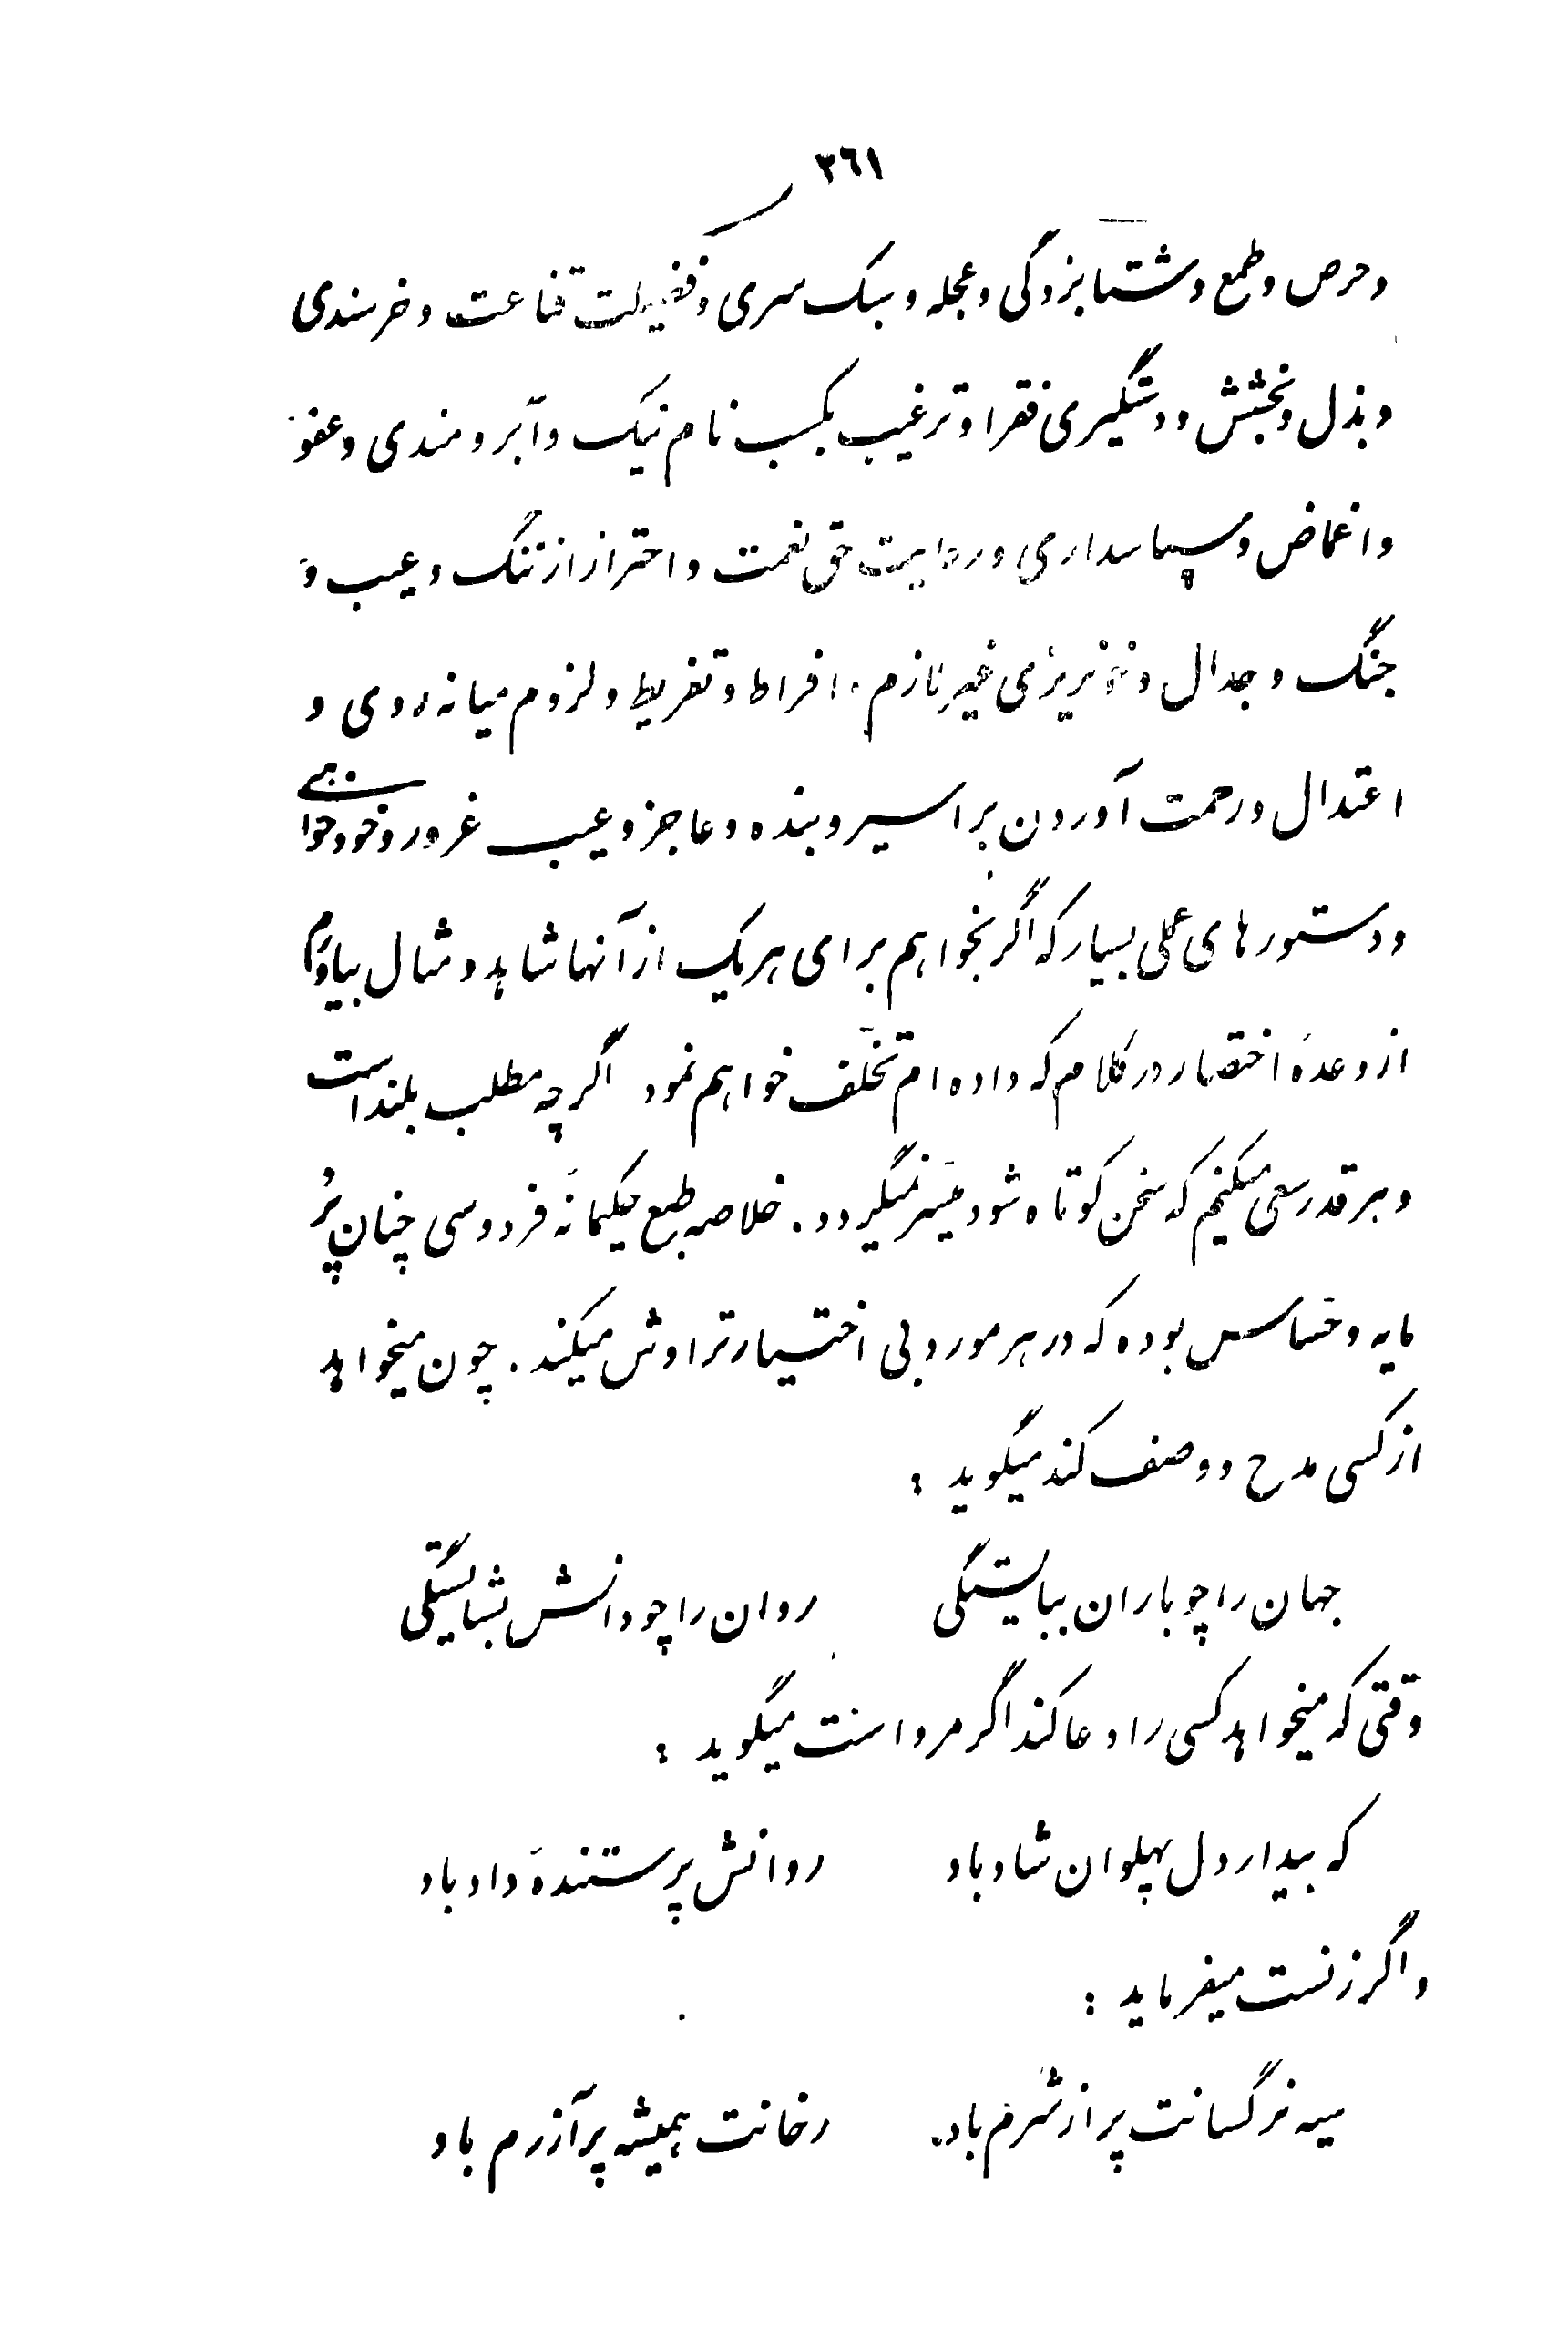 ٣٦١
و حرص و طمع و شتابزدگی و عجله و سبک سری و فضیلت قناعت و خرسندی
و بذل و بخشش و دستگیری فقرا و ترغیب بکسب نام نیک و آبرومندی و عفو
و اغماض و سپاسداری و رعایت حق نعمت و احتراز از ننگ و عیب و
جنگ و جدال و خونریزی غیر لازم و افراط و تفریط و لزوم میانه روی و
اعتدال و رحمت آوردن بر اسیر و بنده و عاجز و عیب غرور و خودخواهی
و دستورهای عملی بسیار که اگر بخواهم برای هر یک از آنها شاهد و مثال بیاورم
از وعدهٔ اختصار در کلام که داده‌ام تخلّف خواهم نمود اگر چه مطلب بلند است
و هر قدر سعی میکنم که سخن کوتاه شود میّسر نمیگردد. خلاصه طبع حکیمانهٔ فردوسی چنان پُر
مایه و حسّاس بوده که در هر مورد بی اختیار تراوش میکند. چون میخواهد
از کسی مدح و وصف کند میگوید :
جهان را چو باران ببایستگی روان را چو دانش بشایستگی
وقتی که میخواهد کسی را دعا کند اگر مرد است میگوید :
که بیدار دل پهلوان شاد باد روانش پرستندهٔ داد باد
و اگر زنست میفرماید :
سیه نرگسانت پر از شرم باد رخانت همیشه پر آزرم باد